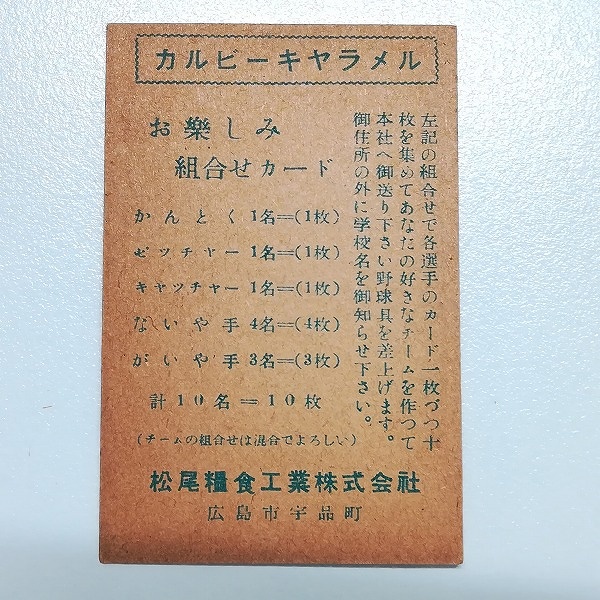 カルビーキヤラメル
お樂しみ
組合せカード
左記の組合せで各選手のカード一枚づつ十
枚を集めてあなたの好きなチームを作つて
本社へ御送り下さい野球具を差上げます。
御住所の外に学校名を御知らせ下さい。
かんとく 1名＝(1枚)
ピツチャー 1名＝(1枚)
キャッチャー 1名＝(1枚)
ないや手 4名＝(4枚)
がいや手 3名＝(3枚)
計10名＝10枚
(チームの組合せは混合でよろしい)
松尾糧食工業株式会社
広島市宇品町